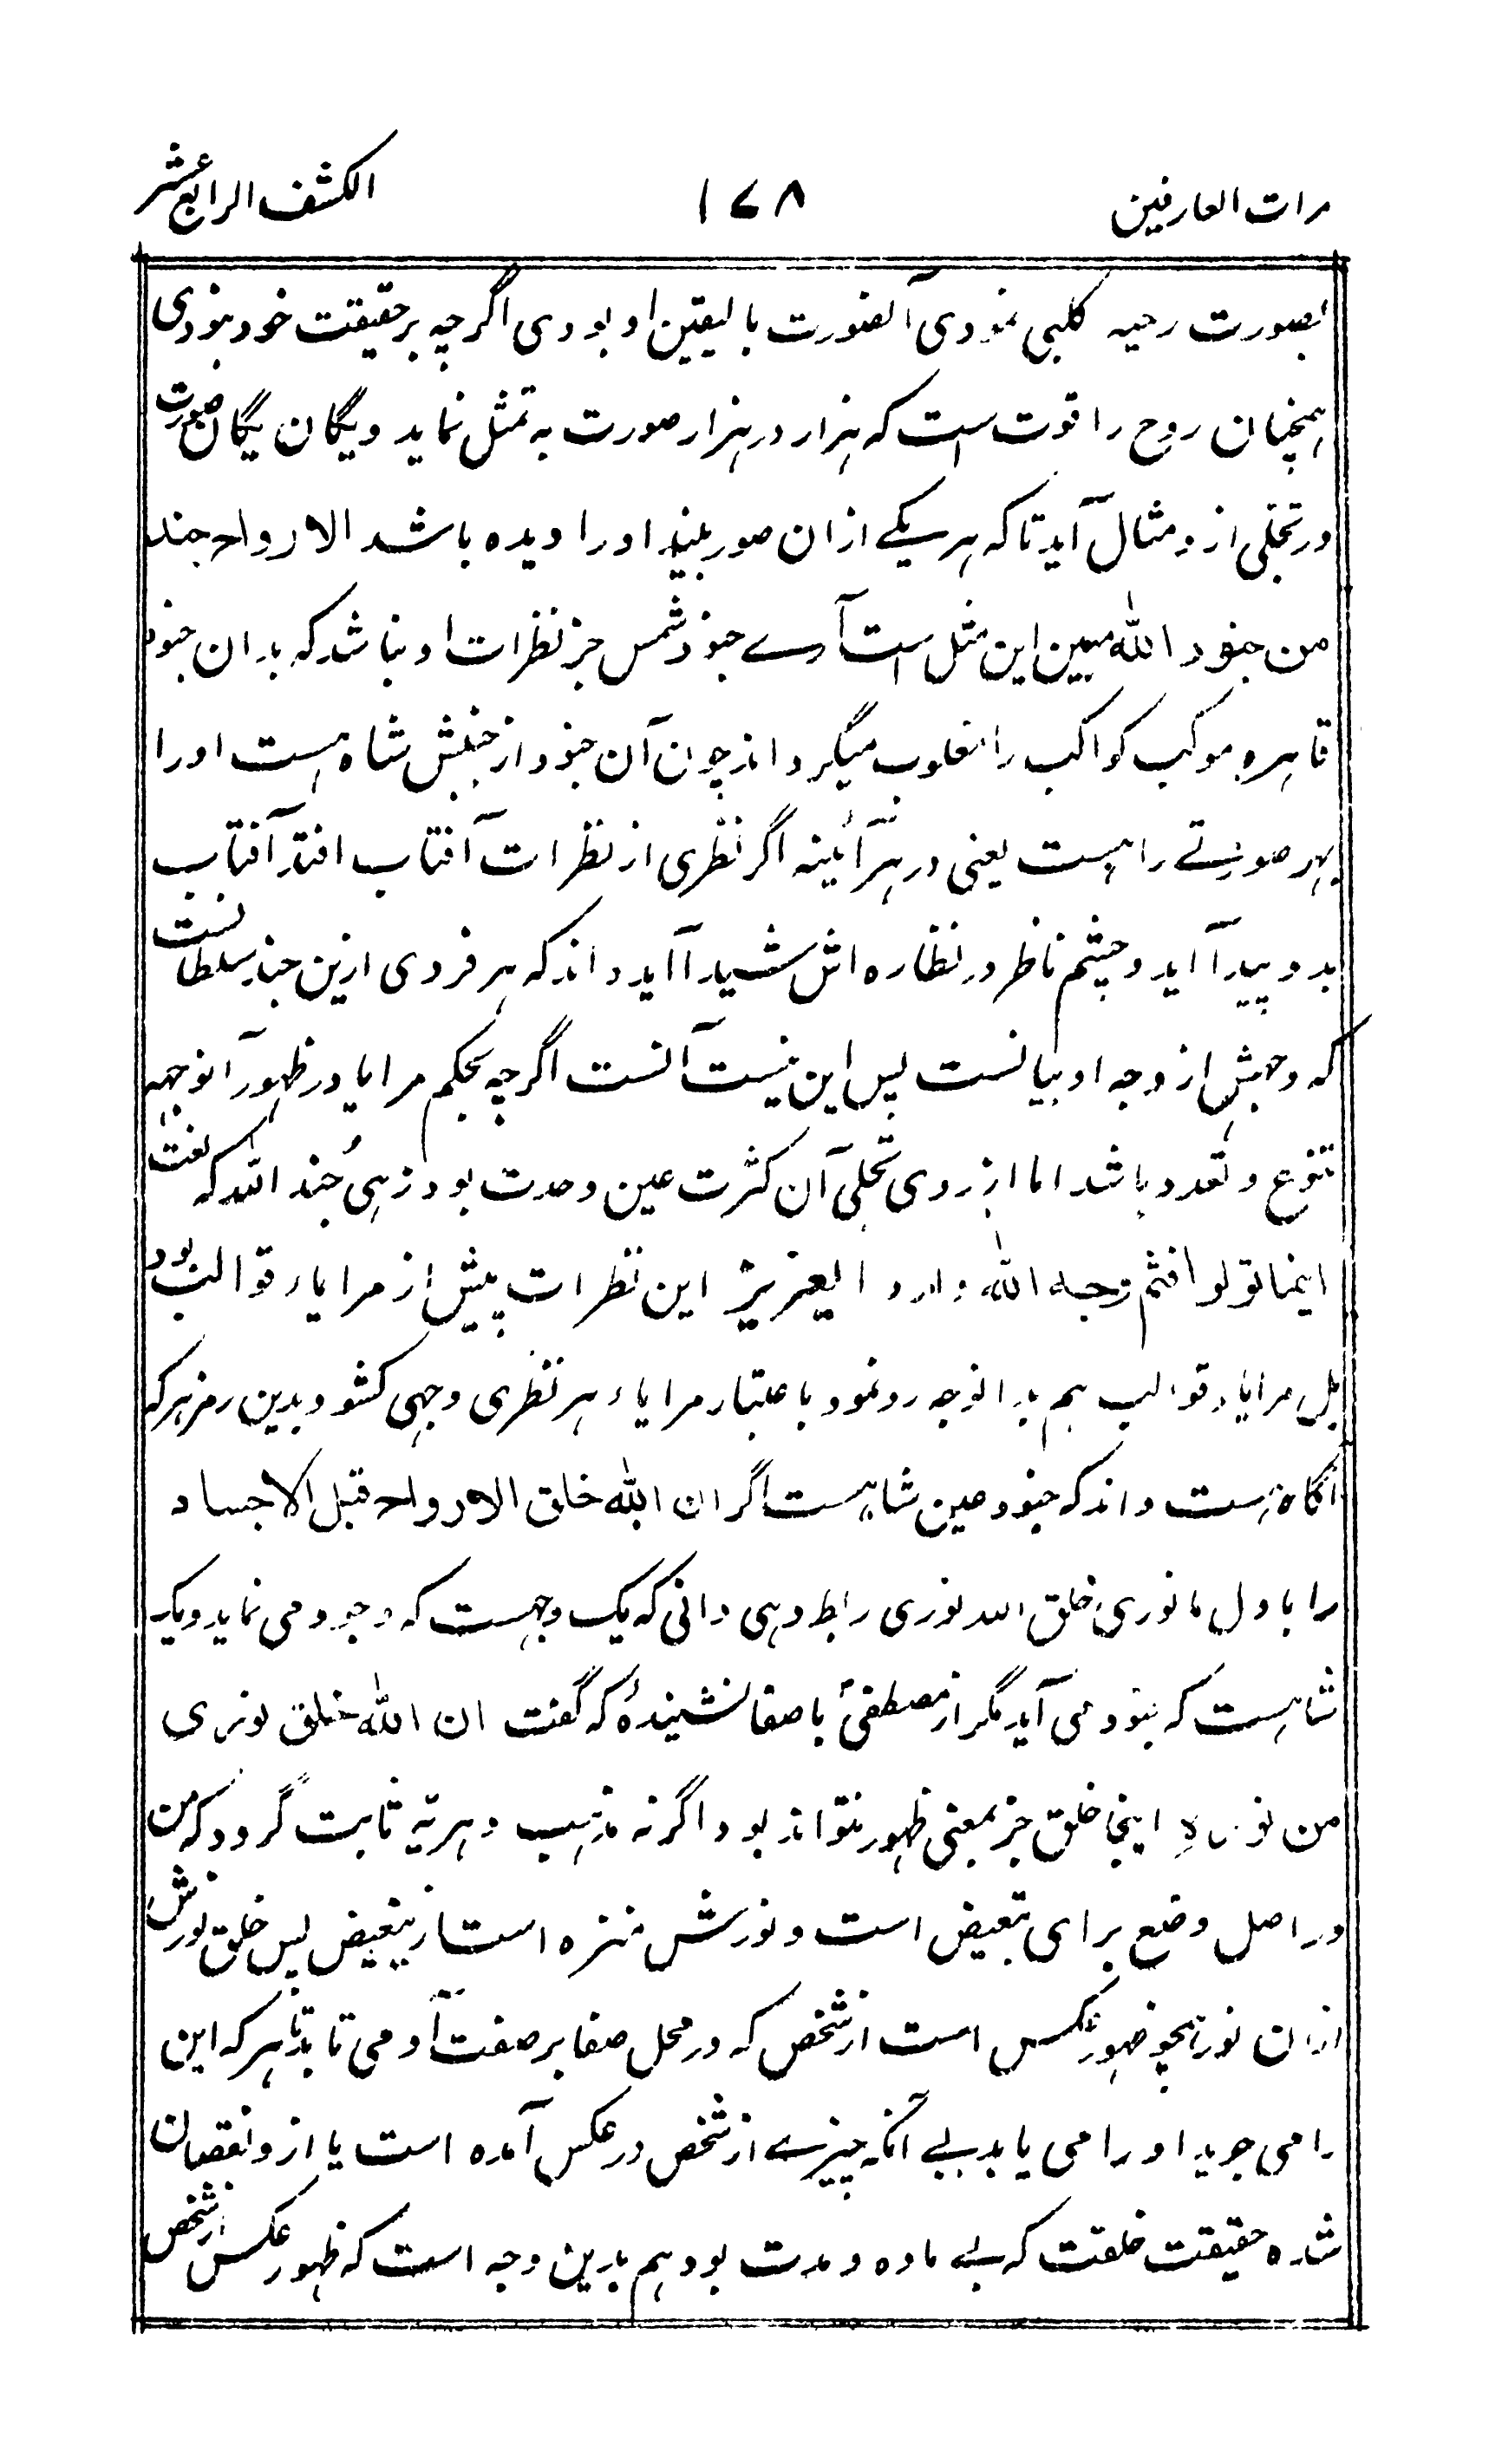 مرات العارفین ۱۷۸ الکشف الرابع عشر
بصورت دحیه کلبی نمودی آنصورت بالیقین او بودی اگرچه بر حقیقت خود بنودی
همچنان روح را قوت است که هزار در هزار صورت به تمثل نماید و یگان یگان صورت
در تجلی ازو مثال آید تا که هر یکے ازان صور بیند او را دیده باشد الارواح جند
من جنود الله مبین این مثل است آرے جنود شمس جز نظرات او نباشد که بدان جنود
قاهره موکب کواکب را مغلوب میگرداند چون آن جنود از جنبش شاه هست او را
بهر صورتے راهست یعنی در هر آئینه اگر نظری از نظرات آفتاب افتد آفتاب
بدو پیدا آید و چشم ناظر در نظاره اش شیدا آید داند که هر فردی ازین جند سلطانست
که وجهش از وجه او بیانست پس این نیست آنست اگرچه بحکم مرایا در ظهور آنوجهه
تنوع و تعدد باشد اما از روی تجلی آن کثرت عین وحدت بود زهی جند الله که نعت
اینما تولوا فثم وجه الله دارد ایعزیز این نظرات پیش از مرایاء قوالب بود
بل مرایاء قوالب هم بدانوجه رو نمود باعتبار مرایاء هر نظری وجهی کشود بدین رمز هر که
آگاه هست داند که جنود عین شاهست اگر ان الله خلق الارواح قبل الاجساد
را باول ما نوری خلق الله نوری رابط دهی دانی که یک وجهست که وجود می نماید و یک
شاهست که بنود می آید مگر از مصطفیٰ باصفا نشنیدهٔ که گفت ان الله خلق نوری
من نوره اینجا خلق جز بمعنی ظهور نتواند بود اگرنه مذهب دهریه ثابت گردد که من
در اصل وضع برای تبعیض است و نورش منزه است از تبعیض پس خلق نورش
ازان نور همچو ظهور عکس است از شخص که در محل صفا بر صفت او می تابد تا هر که این
را می جوید او را می یابد بے آنکه چیزے از شخص در عکس آمده است یا ازو نقصان
شده حقیقت خلقت که بے ماده و مدت بود هم بدین وجه است که ظهور عکس از شخص